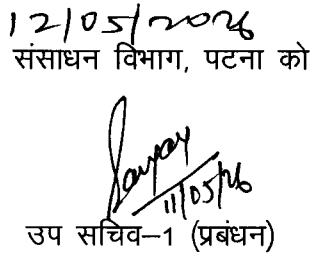 12/05/2026
संसाधन विभाग, पटना को
11/05/26
उप सचिव–1 (प्रबंधन)